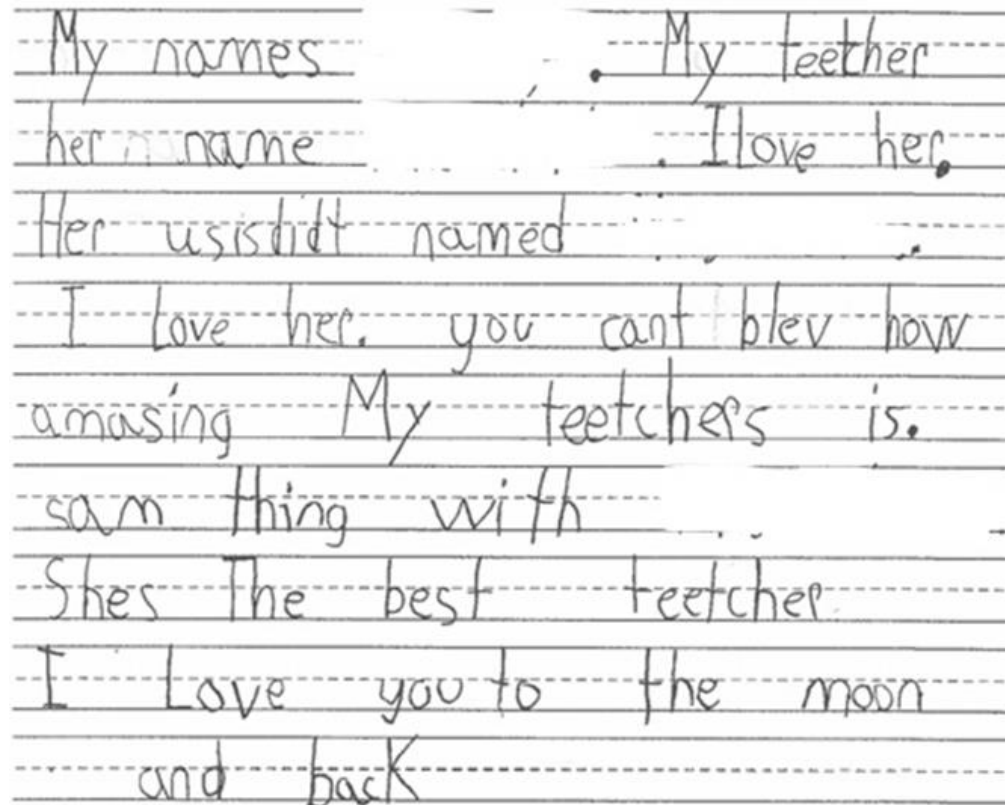 My names . My teether
her name . I love her.
Her usisdidt named .
I Love her. you cant blev how
amasing My teetchers is.
sam thing with
Shes The best teetcher
I Love you to the moon
and back